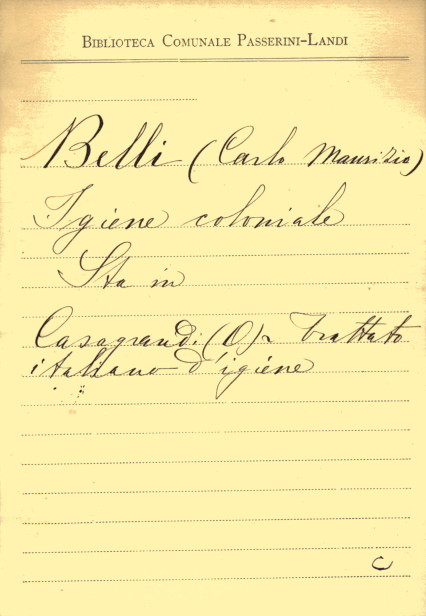 BIBLIOTECA COMUNALE PASSERINI-LANDI
Belli (Carlo Maurizio)
Igiene coloniale
Sta in
Casagrandi (O). Trattato
italiano d'igiene
C